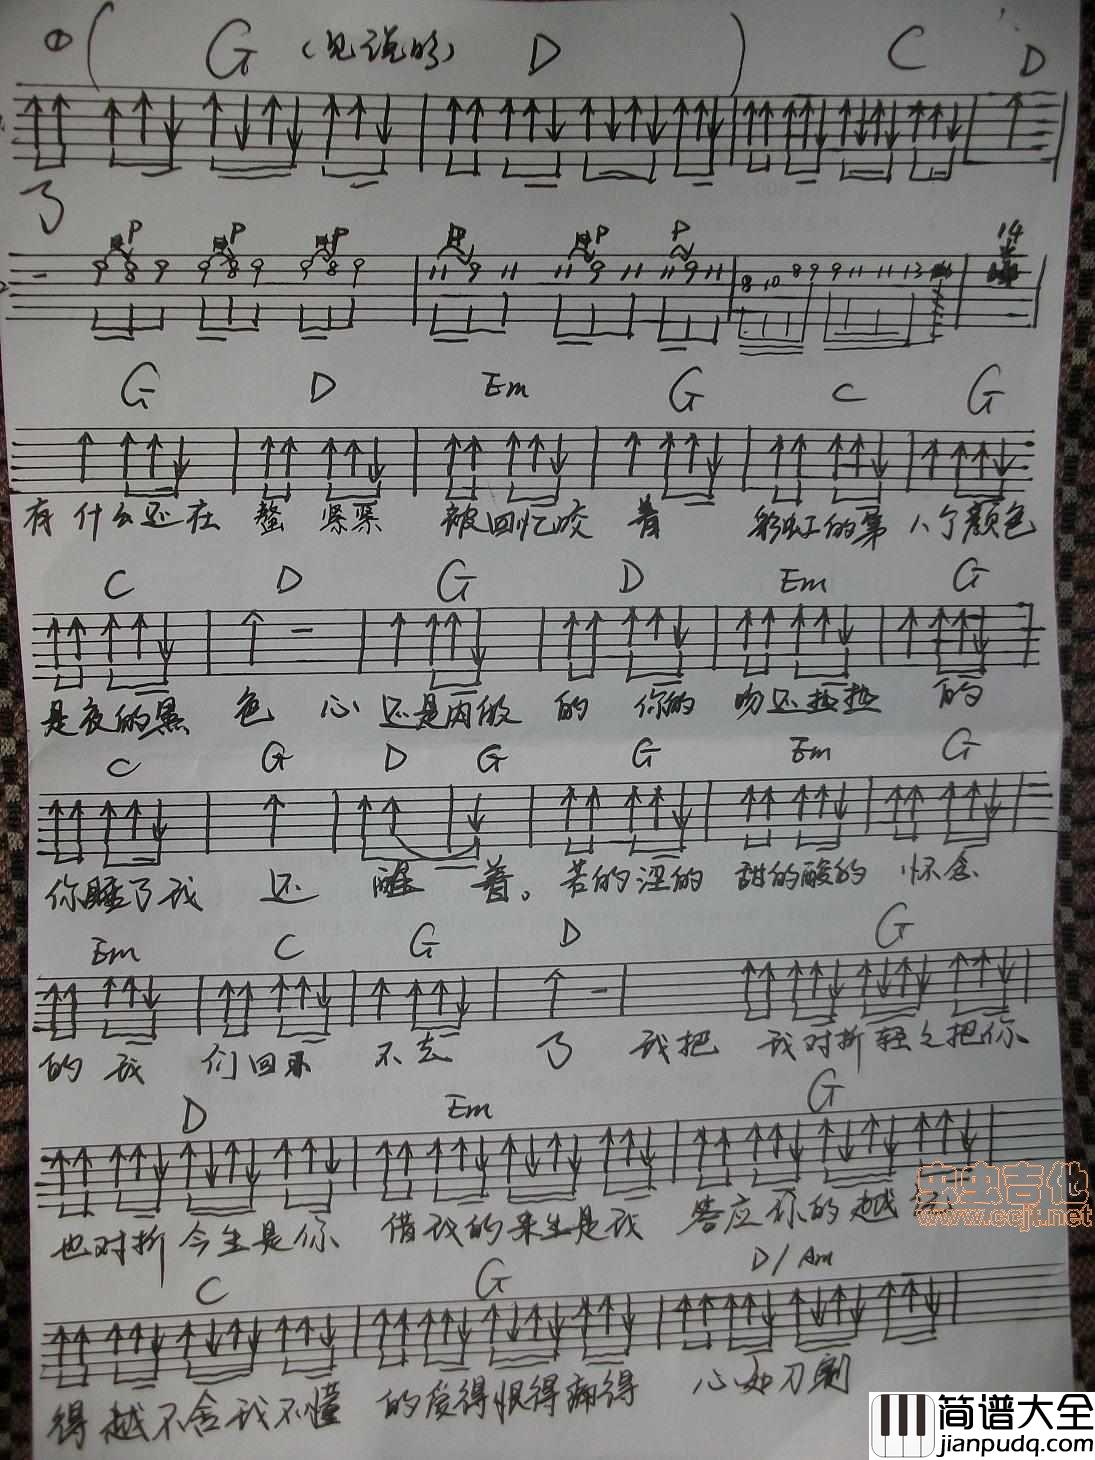 ① ( G (见说明) D ) C D
了
P P P P P P
9 8 9 9 8 9 9 8 9 11 9 11 11 9 11 11 9 11 8 10 8 9 9 11 11 13 14
G D Em G C G
有什么还在 螫 紧紧 被回忆咬 着 彩虹的第 八个颜色
C D G D Em G
是夜的黑 色 心 还是肉做 的 你的 吻还热热 的
C G D G G Em G
你睡了我 还 醒 着。 苦的涩的 甜的酸的 怀念
Em C G D G
的 我 们回来 不去 了 我把 我对折轻之把你
D Em G
也对折 今生是你 借我的来生是我 答应你的越
虫虫吉他
www.ccjt.net
C G D/Am
得越不舍我不懂 的爱得恨得痛得 心如刀割
简谱大全
jianpudq.com